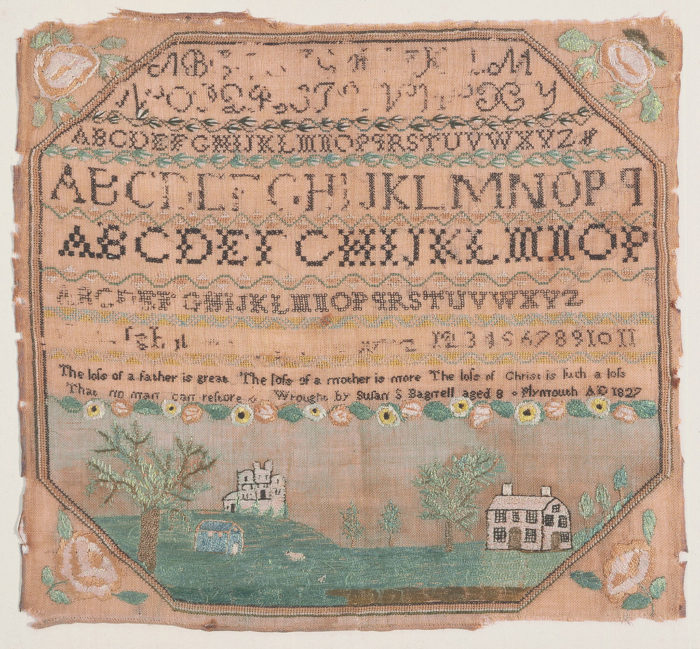 A B G H K L M
N O Q S T V X Y
ABCDEFGHIJKLMNOPqRSTUVWXYZ&
ABCDEFGHIJKLMNOPq
ABCDEFGHIJKLMNOP
ABCDEFGHIJKLMNOPqRSTUVWXYZ
1 2 3 4 5 6 7 8 9 10 11
The loſs of a father is great The loſs of a mother is more The loſs of Christ is ſuch a loſs
That no man can restore Wrought by Susan S Bagnell aged 8 Plymouth AD 1827